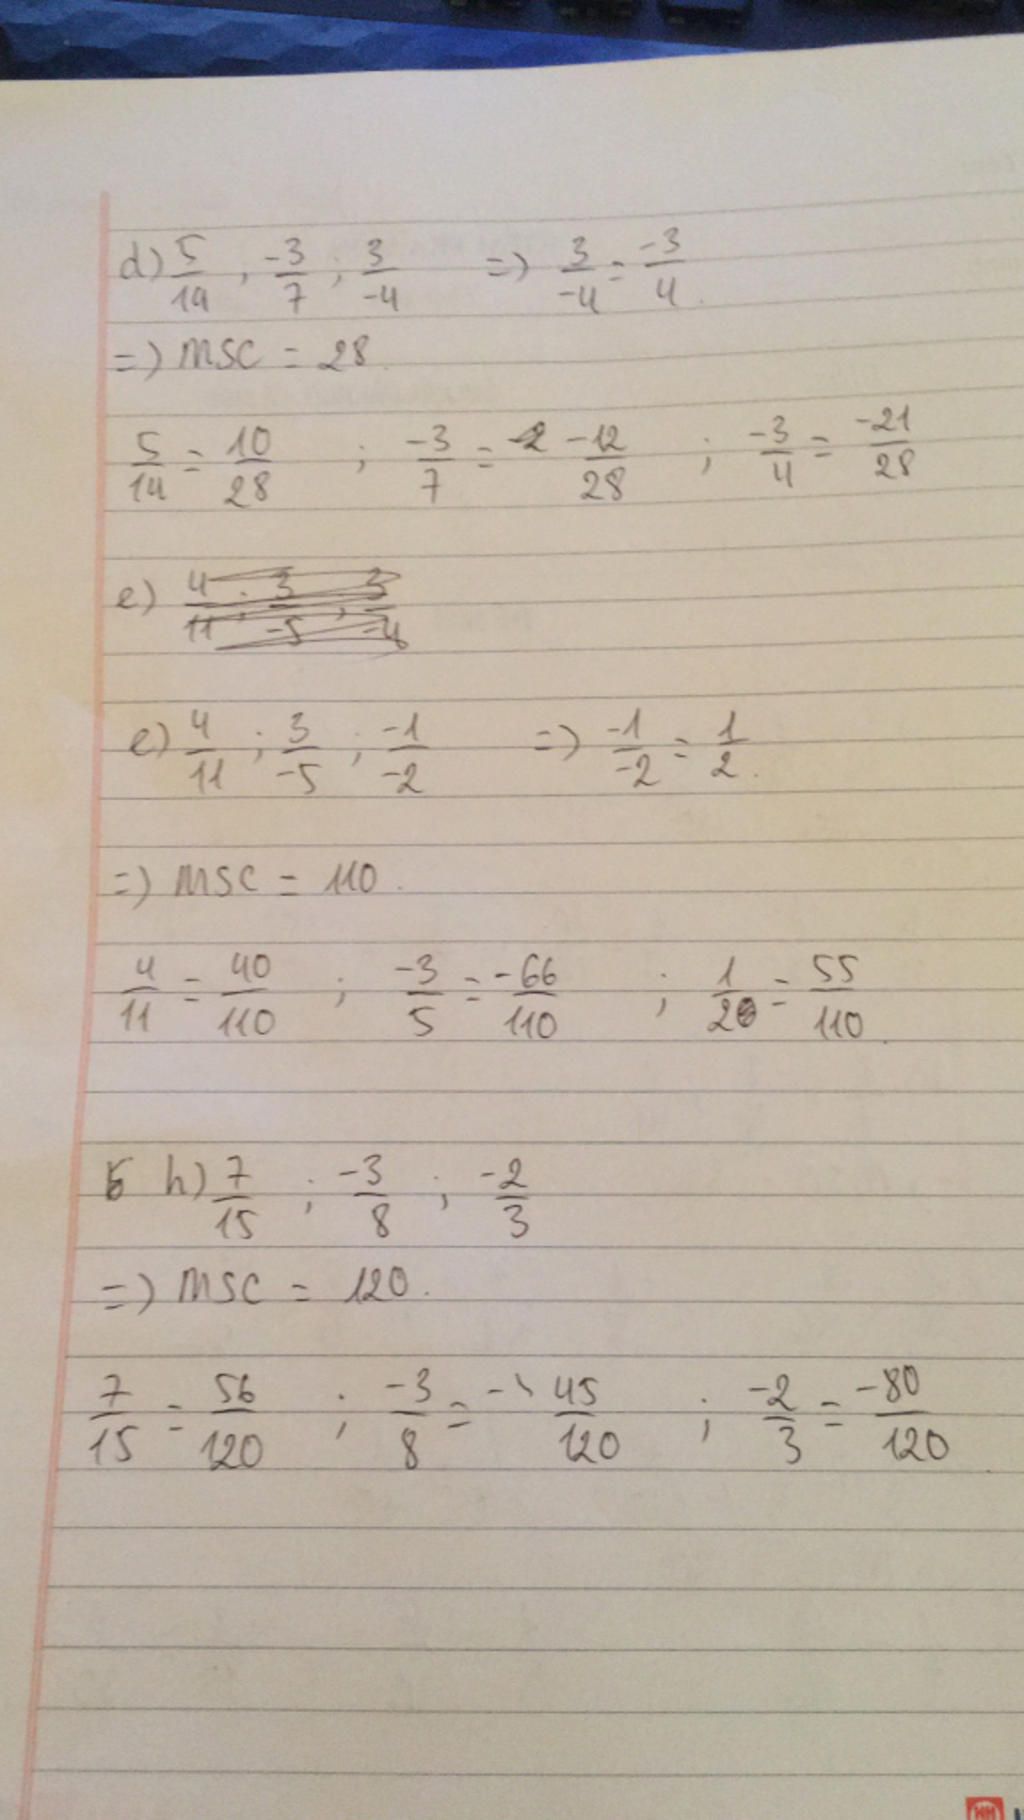 d) 5/14 ; -3/7 ; 3/-4 => 3/-4 = -3/4.
=> MSC = 28.
5/14 = 10/28 ; -3/7 = -12/28 ; -3/4 = -21/28
e) 4/11 ; 3/-5 ; 3/-4
e) 4/11 ; 3/-5 ; -1/-2 => -1/-2 = 1/2.
=> MSC = 110.
4/11 = 40/110 ; -3/5 = -66/110 ; 1/2 = 55/110.
h) 7/15 ; -3/8 ; -2/3
=> MSC = 120.
7/15 = 56/120 ; -3/8 = -45/120 ; -2/3 = -80/120